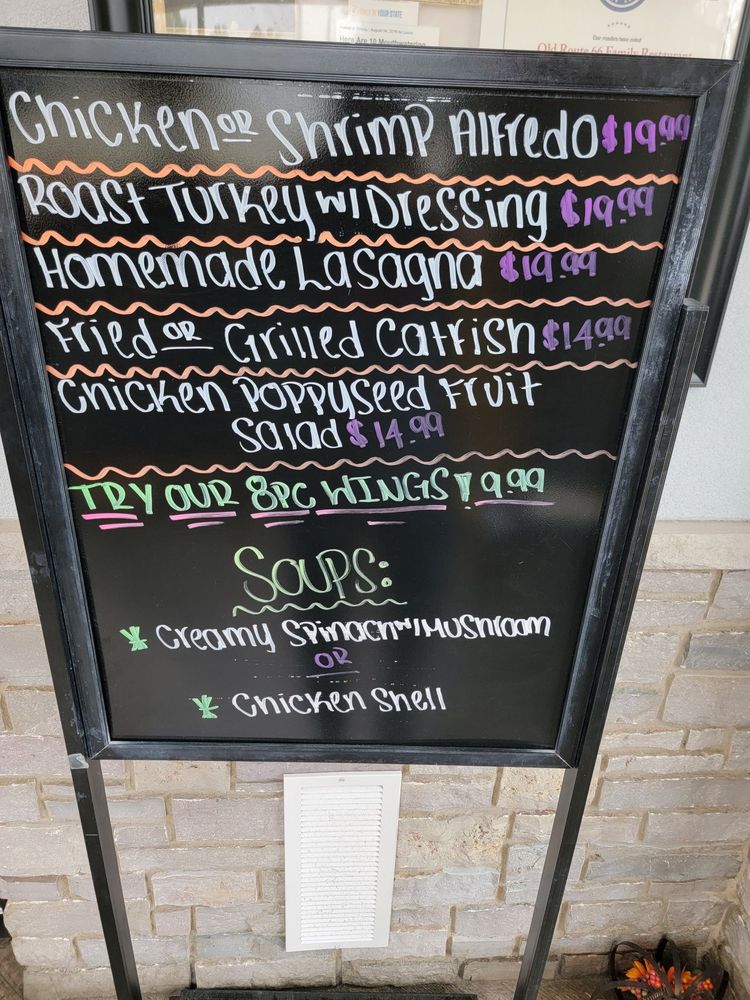 IN YOUR STATE
Here Are 10 Mouthwatering
Our readers have voted
Old Route 66 Family Restaurant
Chicken OR Shrimp Alfredo $19.99
Roast Turkey w/ Dressing $19.99
Homemade Lasagna $19.99
Fried OR Grilled Catfish $14.99
Chicken Poppyseed Fruit
Salad $14.99
TRY OUR 8PC WINGS! 9.99
SOUPS:
* Creamy Spinach w/ Mushroom
OR
* Chicken Shell